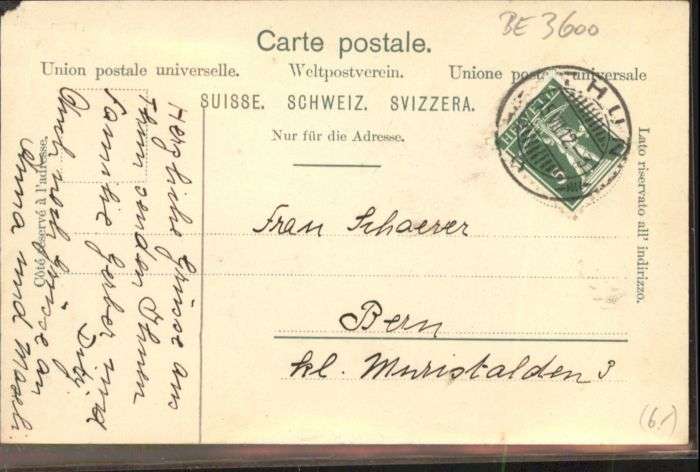 BE 3600
Carte postale.
Union postale universelle. Weltpostverein. Unione postale universale
SUISSE. SCHWEIZ. SVIZZERA.
Nur für die Adresse.
Côté réservé à l'adresse.
Lato riservato all' indirizzo.
THUN
HELVETIA
Frau Schaerer
Bern
kl. Muristalden 3
Herzliche Grüsse aus
Thun senden Ihnen
Familie Gerber und
Auch noch Grüsse an
Anna und
(6.-)